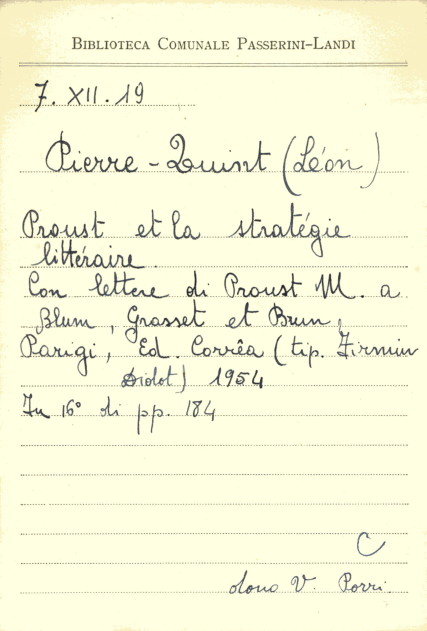 BIBLIOTECA COMUNALE PASSERINI-LANDI
7. XII. 19
Pierre-Quint (Léon)
Proust et la stratégie
littéraire.
Con lettere di Proust M. a
Blum, Grasset et Brun,
Parigi, Ed. Corrêa (tip. Firmin
Didot) 1954
In 16° di pp. 184
C
dono V. Porri.